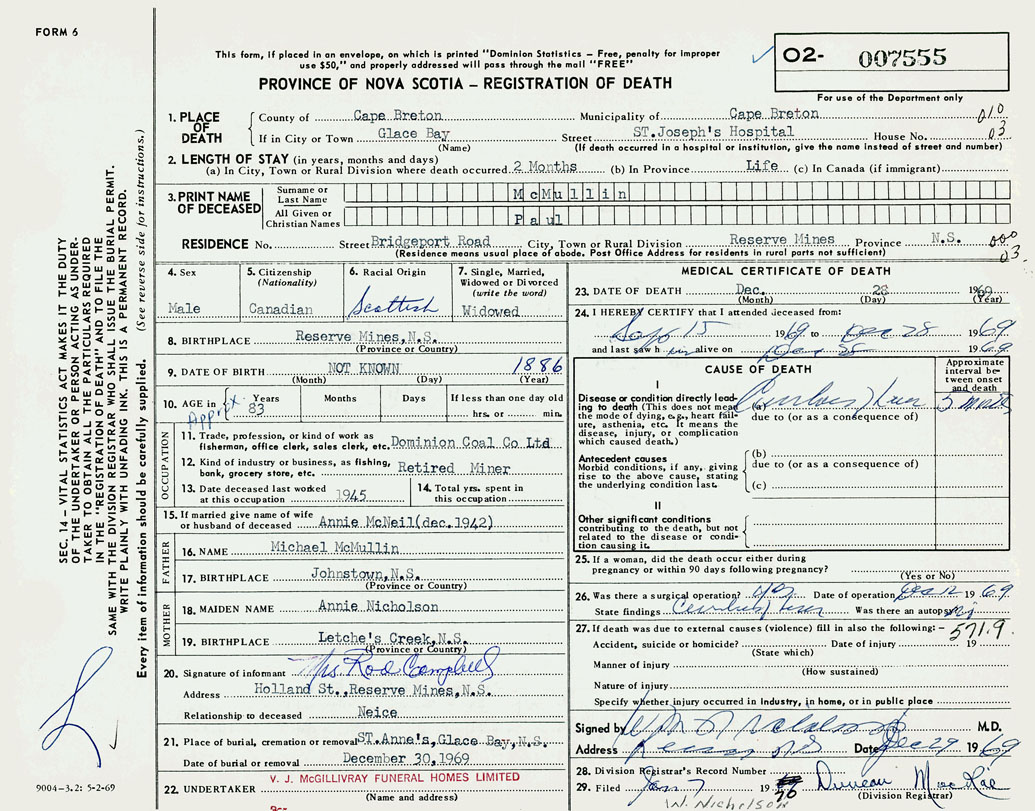 FORM 6
This form, if placed in an envelope, on which is printed "Dominion Statistics – Free, penalty for improper
use $50," and properly addressed will pass through the mail "FREE"
PROVINCE OF NOVA SCOTIA – REGISTRATION OF DEATH
O2- 007555
For use of the Department only
SEC. 14 – VITAL STATISTICS ACT MAKES IT THE DUTY
OF THE UNDERTAKER OR PERSON ACTING AS UNDER-
TAKER TO OBTAIN ALL THE PARTICULARS REQUIRED
IN THE "REGISTRATION OF DEATH" AND TO FILE THE
SAME WITH THE DIVISION REGISTRAR WHO SHALL ISSUE THE BURIAL PERMIT.
WRITE PLAINLY WITH UNFADING INK. THIS IS A PERMANENT RECORD.
Every item of information should be carefully supplied. (See reverse side for instructions.)
1. PLACE OF DEATH
County of Cape Breton Municipality of Cape Breton 010
If in City or Town Glace Bay Street ST.Joseph's Hospital House No. 03
(Name) (If death occurred in a hospital or institution, give the name instead of street and number)
2. LENGTH OF STAY (in years, months and days)
(a) In City, Town or Rural Division where death occurred 2 Months (b) In Province Life (c) In Canada (if immigrant)
3. PRINT NAME OF DECEASED
Surname or Last Name McMullin
All Given or Christian Names Paul
RESIDENCE No. Street Bridgeport Road City, Town or Rural Division Reserve Mines Province N.S. 000
(Residence means usual place of abode. Post Office Address for residents in rural parts not sufficient) 03.
4. Sex Male
5. Citizenship (Nationality) Canadian
6. Racial Origin Scottish
7. Single, Married, Widowed or Divorced (write the word) Widowed
8. BIRTHPLACE Reserve Mines,N.S.
(Province or Country)
9. DATE OF BIRTH NOT KNOWN 1886
(Month) (Day) (Year)
10. AGE in Approx Years 83 Months Days If less than one day old
hrs. or min.
OCCUPATION
11. Trade, profession, or kind of work as
fisherman, office clerk, sales clerk, etc. Dominion Coal Co Ltd
12. Kind of industry or business, as fishing,
bank, grocery store, etc. Retired Miner
13. Date deceased last worked
at this occupation 1945
14. Total yrs. spent in
this occupation
15. If married give name of wife
or husband of deceased Annie McNeil(dec.1942)
FATHER
16. NAME Michael McMullin
17. BIRTHPLACE Johnstown,N.S.
(Province or Country)
MOTHER
18. MAIDEN NAME Annie Nicholson
19. BIRTHPLACE Letche's Creek,N.S.
(Province or Country)
20. Signature of informant Mrs Rod Campbell
Address Holland St.,Reserve Mines,N.S.
Relationship to deceased Neice
21. Place of burial, cremation or removal ST.Anne's,Glace Bay,N.S.
Date of burial or removal December 30,1969
V. J. McGILLIVRAY FUNERAL HOMES LIMITED
22. UNDERTAKER
(Name and address)
9004–3.2: 5-2-69
MEDICAL CERTIFICATE OF DEATH
23. DATE OF DEATH Dec. 28 1969
(Month) (Day) (Year)
24. I HEREBY CERTIFY that I attended deceased from:
Sept 15 1969 to Dec 28 1969
and last saw him alive on Dec 28 1969.
CAUSE OF DEATH
Approximate interval between onset and death
I
Disease or condition directly lead-
ing to death (This does not mean
the mode of dying, e.g., heart fail-
ure, asthenia, etc. It means the
disease, injury, or complication
which caused death.)
(a) 3 months
due to (or as a consequence of)
Antecedent causes
Morbid conditions, if any, giving
rise to the above cause, stating
the underlying condition last.
(b)
due to (or as a consequence of)
(c)
II
Other significant conditions
contributing to the death, but not
related to the disease or condi-
tion causing it.
25. If a woman, did the death occur either during
pregnancy or within 90 days following pregnancy?
(Yes or No)
26. Was there a surgical operation? yes Date of operation 1969.
State findings Was there an autopsy
27. If death was due to external causes (violence) fill in also the following: - 571.9
Accident, suicide or homicide? Date of injury 19
(State which)
Manner of injury
(How sustained)
Nature of injury
Specify whether injury occurred in industry, in home, or in public place
Signed by M.D.
Address Date Dec 29 1969
28. Division Registrar's Record Number
29. Filed Jan 7 19 70 Duncan MacRae
(Division Registrar)
W. Nicholson